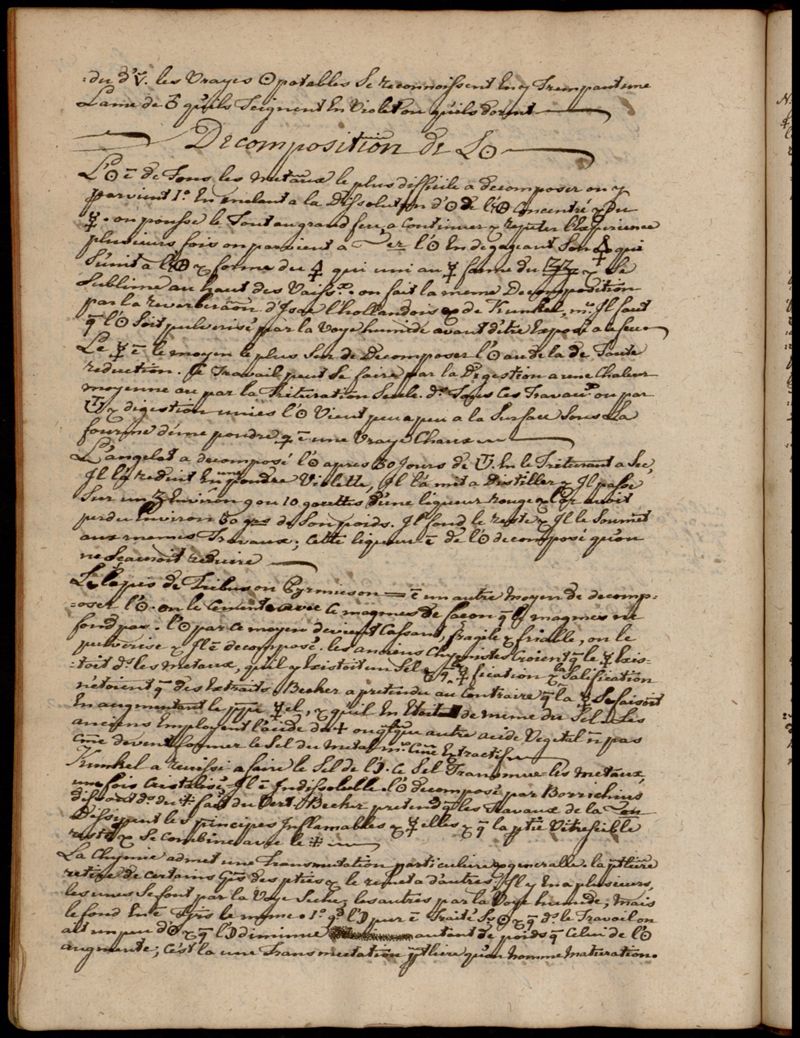 du d° les Vrayes ☉ potables Se reconnoissent En y Trempant une
Lame de qu'ils Teignent En Violet ou qu'ils dorent
Decomposition de L☉
L'☉ ē de Tous les metaux le plus difficile a decomposer on y
parvient 1° En melant a la Dissolution d'☉ de l' Concentré & Du
☿. on pousse le Tout au grand feu, a Continuer & repeter l'Experience
plusieurs fois on parvient a l'☉ En degageant Son 🜍 qui
S'unit a l' & forme du 🜍 qui uni au ☿ forme du & Se
Sublime au haut des Vaiss. on fait la meme Decomposition
par la reverberaōn d'Isac l'hollandois & de Kunkel, Il faut
q̄ l'☉ Soit pulverisé par la Voye humide avant d'être Exposé a le feu
Le ☿ ē le moyen le plus Sur de Decomposer l'☉ au dela de Toute
reduction. Ce Travail peut Se faire par la Digestion a une Chaleur
moyenne ou par la Trituration Seule. d° Tous Ces Travaux ou par
& digestion unies l'☉ Vient peu a peu a la Surface Sous La
fourme d'une poudre q̄ ē une Vraye Chaux
L'angelot a decomposé l'☉ apres 30 Jours de En le Triturant a Sec,
Il la reduit En une poudre Violette, Il l'a mit a Distiller & Il passe
Sur un Environ 9 ou 10 gouttes d'une liqueur rouge & l'☉ avoit
perdu Environ 30 de Son poids. Il fond le reste & Il le Soumet
aux memes Travaux; Cette liqueur ē de l'☉ decomposé qu'on
ne Scauroit reduire
Le lapis de Tribus ou Pyrmieson ē un autre moyen de decomp-
-oser l'☉. on le Cimente avec Ce magmes de façon q̄ le magmes ne
fond pas. l'☉ par Ce moyen devient Cassant, fragile & friable, on le
pulverise & Il ē decomposé. les anciens Chymistes Croient q̄ le ☿ Exis-
-toit d° les metaux, qu'il y Existoit un Sel & q̄ ☿fication & la Salification
n'étoient q̄ des Extraits. Becher a pretendu au Contraire q̄ la ☿ Se faisoit
En augmentant le ppe ☿el, & qu'il En Etoit de même du Sel. Les
anciens Employent l'acide du ou tout autre acide Vegetal n̄ pas
Côme devent former le Sel du metal Côme Extractif
Kunkel a reussi a faire le Sel de l'☽. Ce Sel Transmue les metaux,
une fois Cristalisé, Il ē Indissoluble. l'☉ decomposé par Borrichius
dissout d° du fait du Vert. Becher pretend q̄ les Travaux de la
Dissipent les principes Inflamables & ☿elles & q̄ la ptie Vitrescible
reste & Se Combine avec le
La Chymie admet une Transmutation particuliere & generalle. la ptliere
retire de Certains Gms des pties & le remet a d'autres; Il y En a plusieurs,
les unes Se font par la Voye Seche, les autres par la Voye humide; mais
le fond En ē Tjrs le meme. 1° q̄ l'☽ pur ē Traité & q̄ d° le Travail on
ait un peu d☉ & q̄ l'☽ diminue autant de poids q̄ Celui de l'☉
augmente; C'est la une Transmutation ptliere qu'on nomme Maturation.